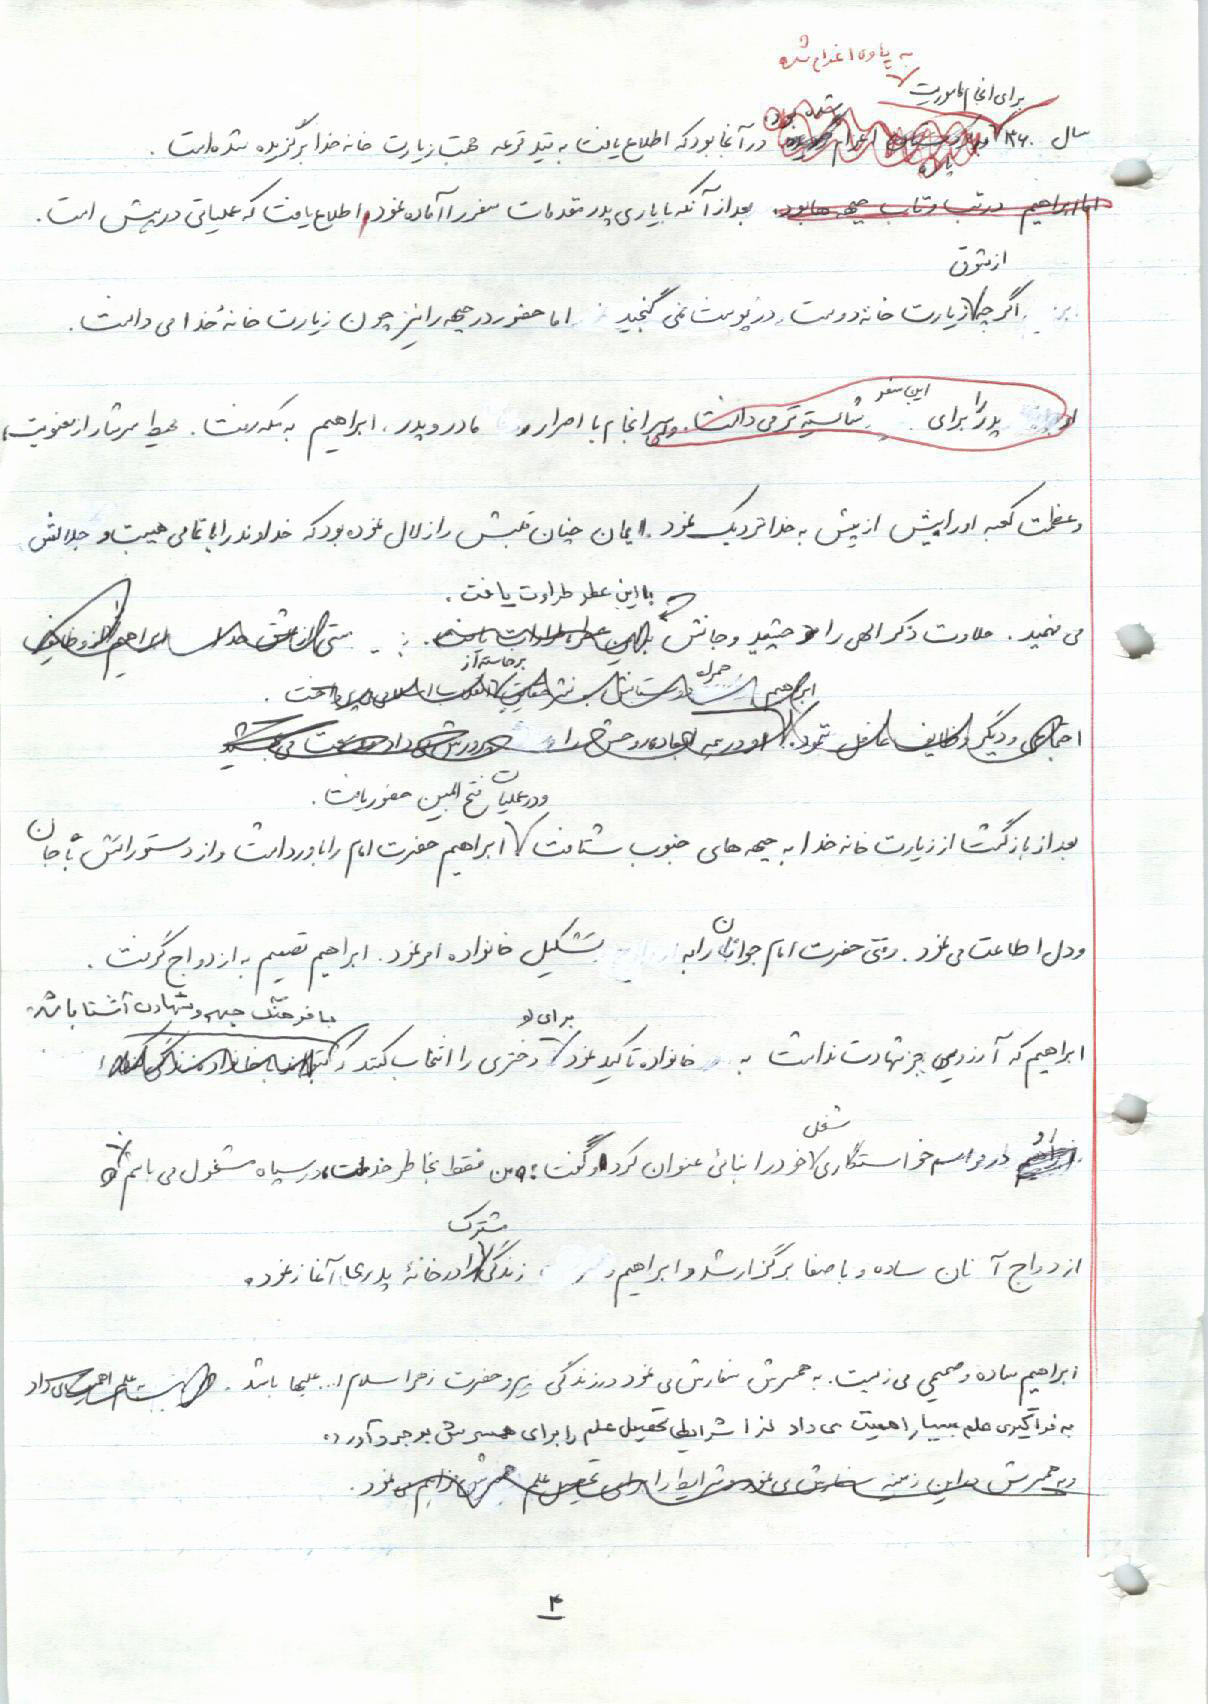 به پاوه اعزام شد
برای انجام ماموریت
سال ۱۳۶۰ اعزام شده بود در آنجا بود که اطلاع یافت به قید قرعه جهت زیارت خانه خدا برگزیده شده است .
اما ابراهیم در تب و تاب جبهه ها بود . بعد از آنکه با یاری پدر مقدمات سفر را آماده نمود اطلاع یافت که عملیاتی در پیش است .
از شوق
اگر چه زیارت خانه دوست در پوست نمی گنجید اما حضور در جبهه را نیز چون زیارت خانۀ خدا می دانست .
این سفر
او پدر را برای شایسته تر می دانست . ولی سرانجام با اصرار مادر و پدر ، ابراهیم به مکه رفت . محیط سرشار از معنویت
و عظمت کعبه او را بیش از پیش به خدا نزدیک نمود . ایمان چنان قلبش را زلال نموده بود که خداوند را با تمامی هیبت و جلالش
با این عطر طراوت یافت .
می فهمید . حلاوت ذکر الهی را چشید و جانش با این عطر طراوت یافت .
برخاسته از
ابراهیم انقلاب اسلامی می پرداخت .
اجتماعی و دیگر وظایف غافل ننمود .
و در عملیات فتح المبین حضور یافت .
بعد از بازگشت از زیارت خانه خدا به جبهه های جنوب شتافت ابراهیم حضرت امام را باور داشت و از دستوراتش با جان
و دل اطاعت می نمود . وقتی حضرت امام جوانان را به تشکیل خانواده امر نمود . ابراهیم تصمیم به ازدواج گرفت .
با فرهنگ جبهه و شهادت آشنا باشد
برای او
ابراهیم که آرزویی جز شهادت نداشت به خانواده تاکید نمود دختری را انتخاب کنند که
شغل
او در مراسم خواستگاری خود را بنائی عنوان کرد و گفت : من فقط بخاطر خدمت در سپاه مشغول می باشم
مشترک
ازدواج آنان ساده و با صفا برگزار شد و ابراهیم زندگی را در خانۀ پدری آغاز نمود .
ابراهیم ساده و صمیمی می زیست . به همسرش سفارش می نمود در زندگی پیرو حضرت زهرا سلام ا... علیها باشد .
به فراگیری علم بسیار اهمیت می داد لذا شرایط تحصیل علم را برای همسرش بوجود آورد .
و به همسرش در این زمینه سفارش می نمود و شرایط را برای تحصیل علم همسرش فراهم می نمود .
۴